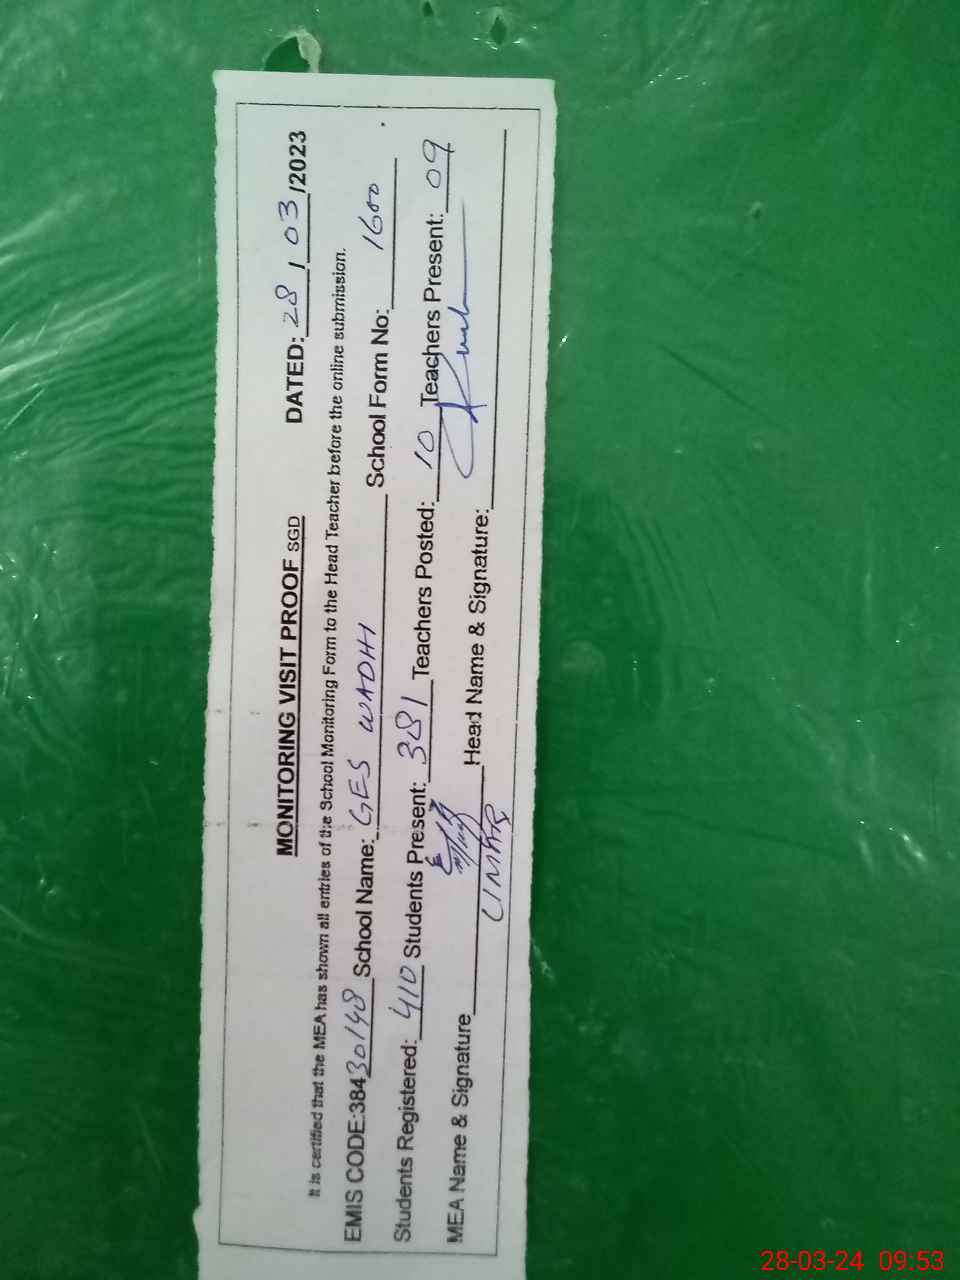 MONITORING VISIT PROOF SGD DATED: 28/03/2023
It is certified that the MEA has shown all entries of the School Monitoring Form to the Head Teacher before the online submission.
EMIS CODE:38430148 School Name: GES WADHI School Form No: 1600
Students Registered: 410 Students Present: 381 Teachers Posted: 10 Teachers Present: 09
MEA Name & Signature Head Name & Signature:
UMAR
28-03-24 09:53